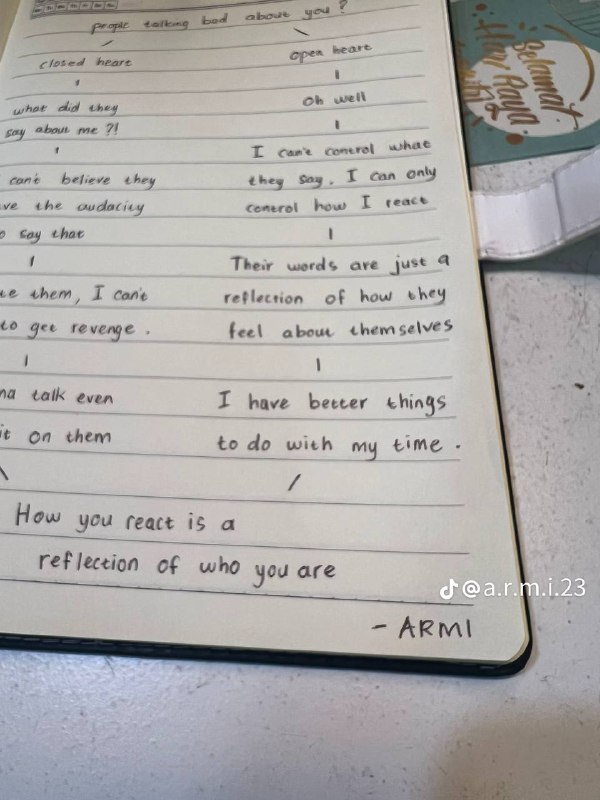 people talking bad about you?
closed heart
what did they
say about me ?!
can't believe they
ve the audacity
o say that
te them, I can't
to get revenge .
na talk even
it on them
open heart
Oh well
I can't control what
they say, I can only
control how I react
Their words are just a
reflection of how they
feel about themselves
I have better things
to do with my time .
How you react is a
reflection of who you are
- ARMI
@a.r.m.i.23
Selamat
Hari Raya